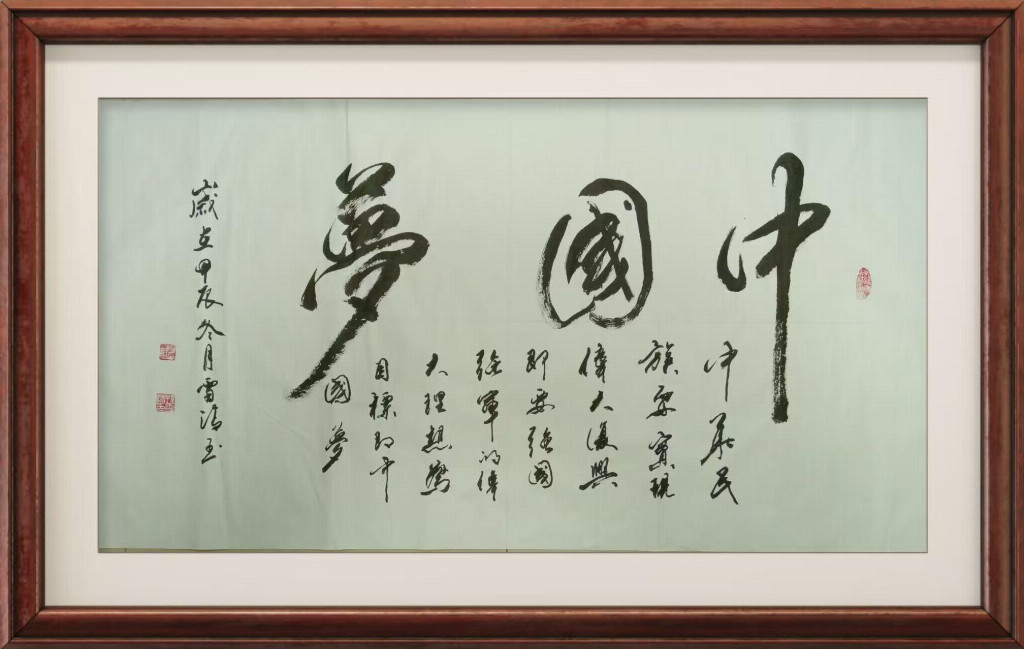 中國夢
中華民
族要實現
偉大復興
即要強國
強軍的偉
大理想
目標即中
國夢
歲在甲辰冬月雷清玉